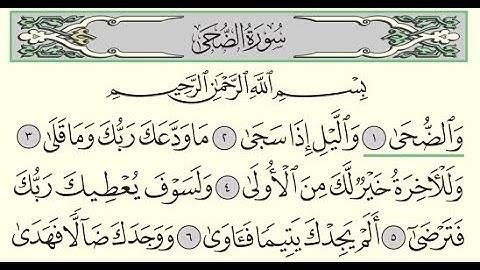 سُورَةُ الضُّحَىٰ
بِسْمِ اللَّهِ الرَّحْمَٰنِ الرَّحِيمِ
وَالضُّحَىٰ ١ وَاللَّيْلِ إِذَا سَجَىٰ ٢ مَا وَدَّعَكَ رَبُّكَ وَمَا قَلَىٰ ٣
وَلَلْآخِرَةُ خَيْرٌ لَّكَ مِنَ الْأُولَىٰ ٤ وَلَسَوْفَ يُعْطِيكَ رَبُّكَ
فَتَرْضَىٰ ٥ أَلَمْ يَجِدْكَ يَتِيمًا فَآوَىٰ ٦ وَوَجَدَكَ ضَالًّا فَهَدَىٰ